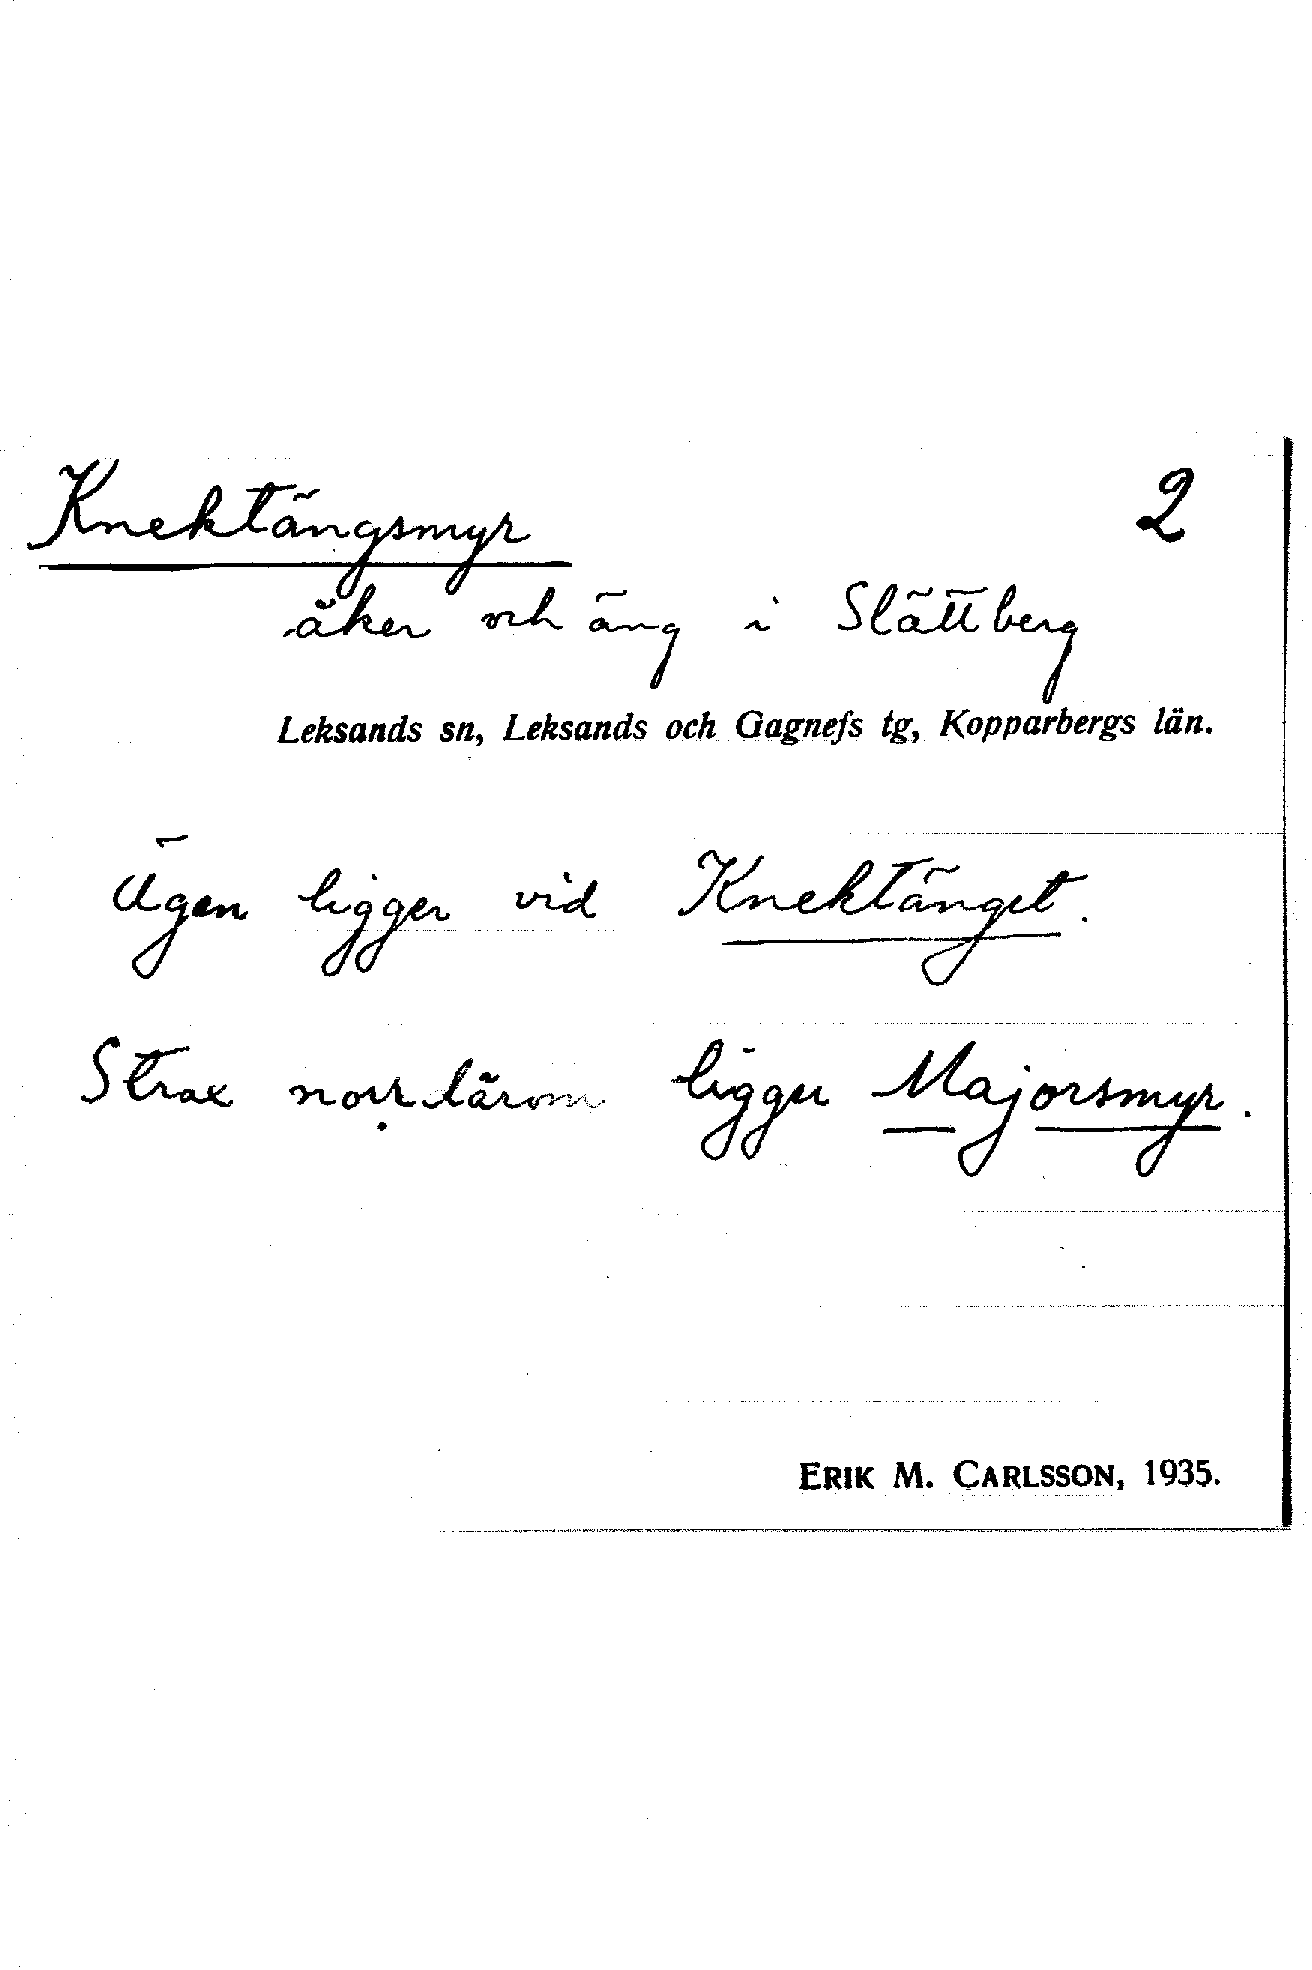 Knektängsmyr 2
åker och äng i Slättberg
Leksands sn, Leksands och Gagnefs tg, Kopparbergs län.
Ägen ligger vid Knektänget.
Strax norr därom ligger Majorsmyr.
ERIK M. CARLSSON, 1935.